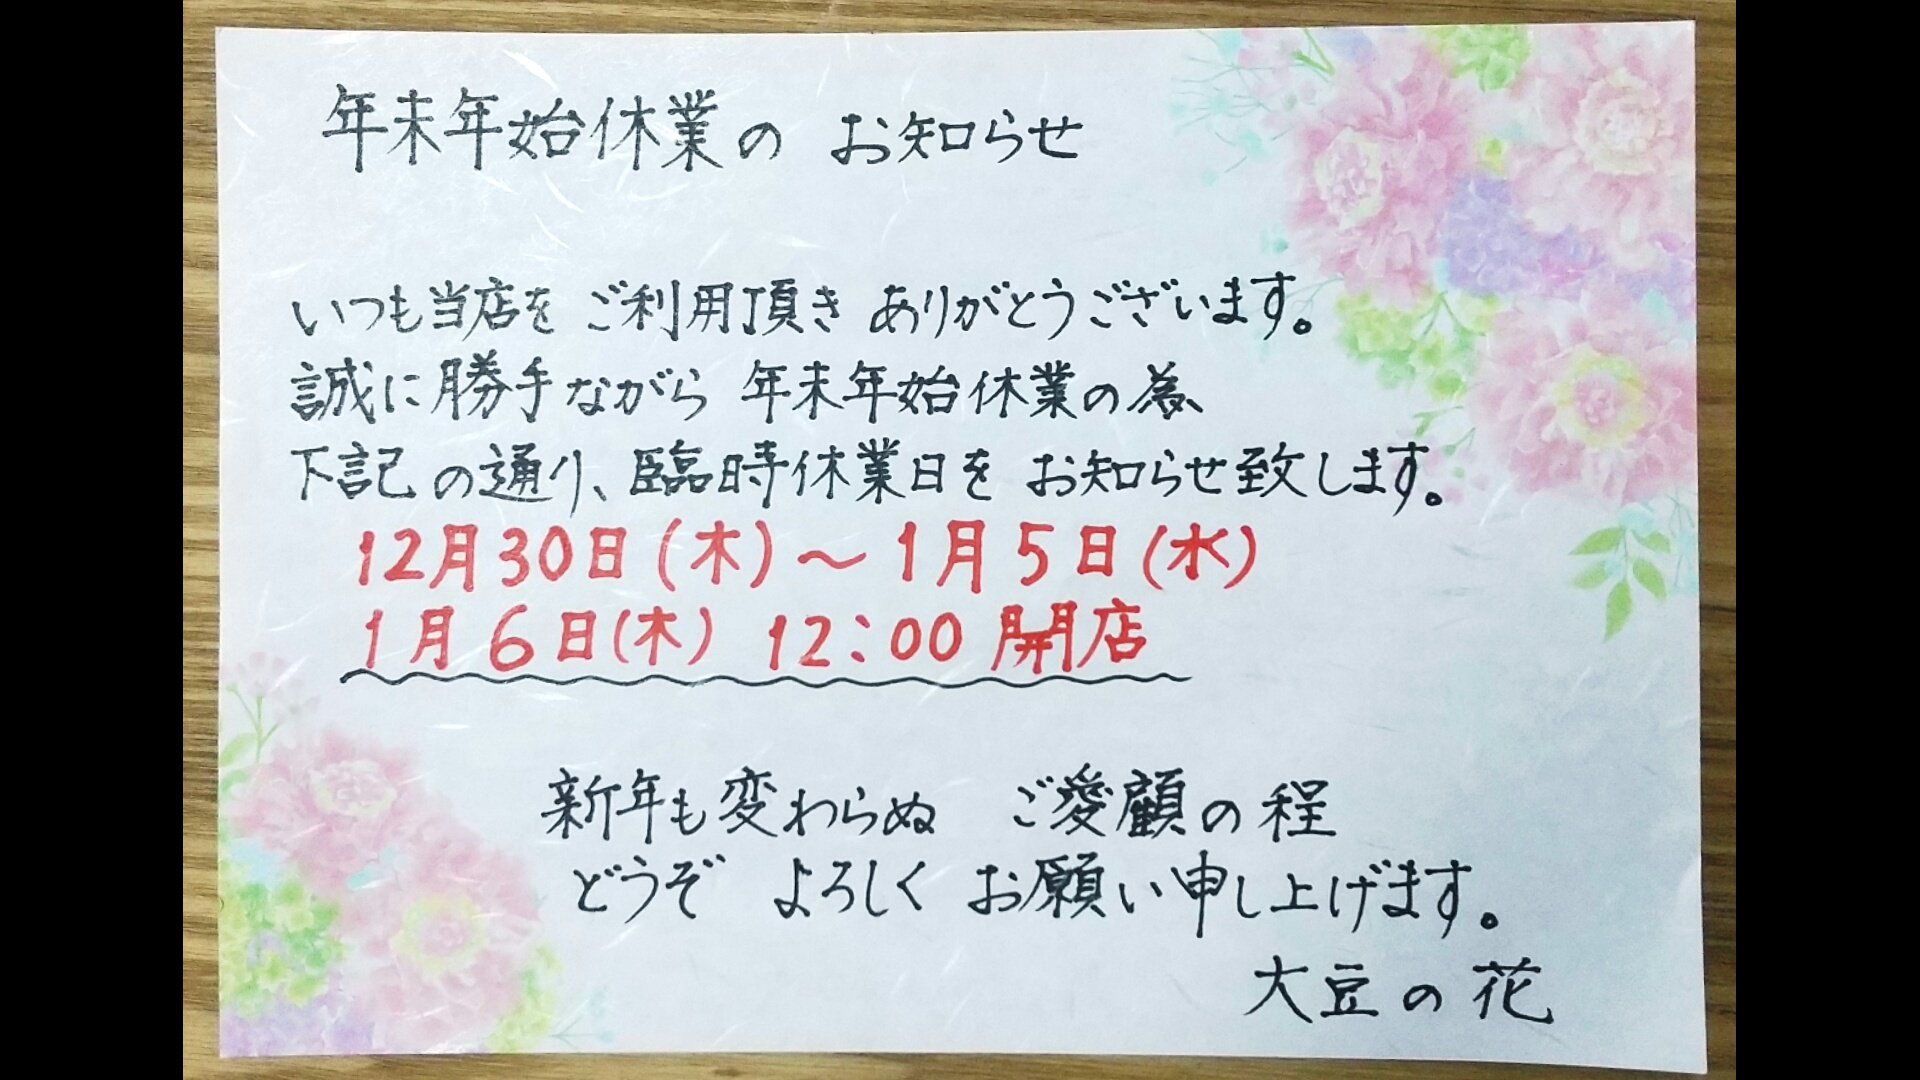 年末年始休業の お知らせ
いつも当店を ご利用頂き ありがとうございます。
誠に勝手ながら 年末年始休業の為
下記の通り、臨時休業日を お知らせ致します。
12月30日(木)～1月5日(水)
1月6日(木) 12:00開店
新年も変わらぬ ご愛顧の程
どうぞ よろしく お願い申し上げます。
大豆の花